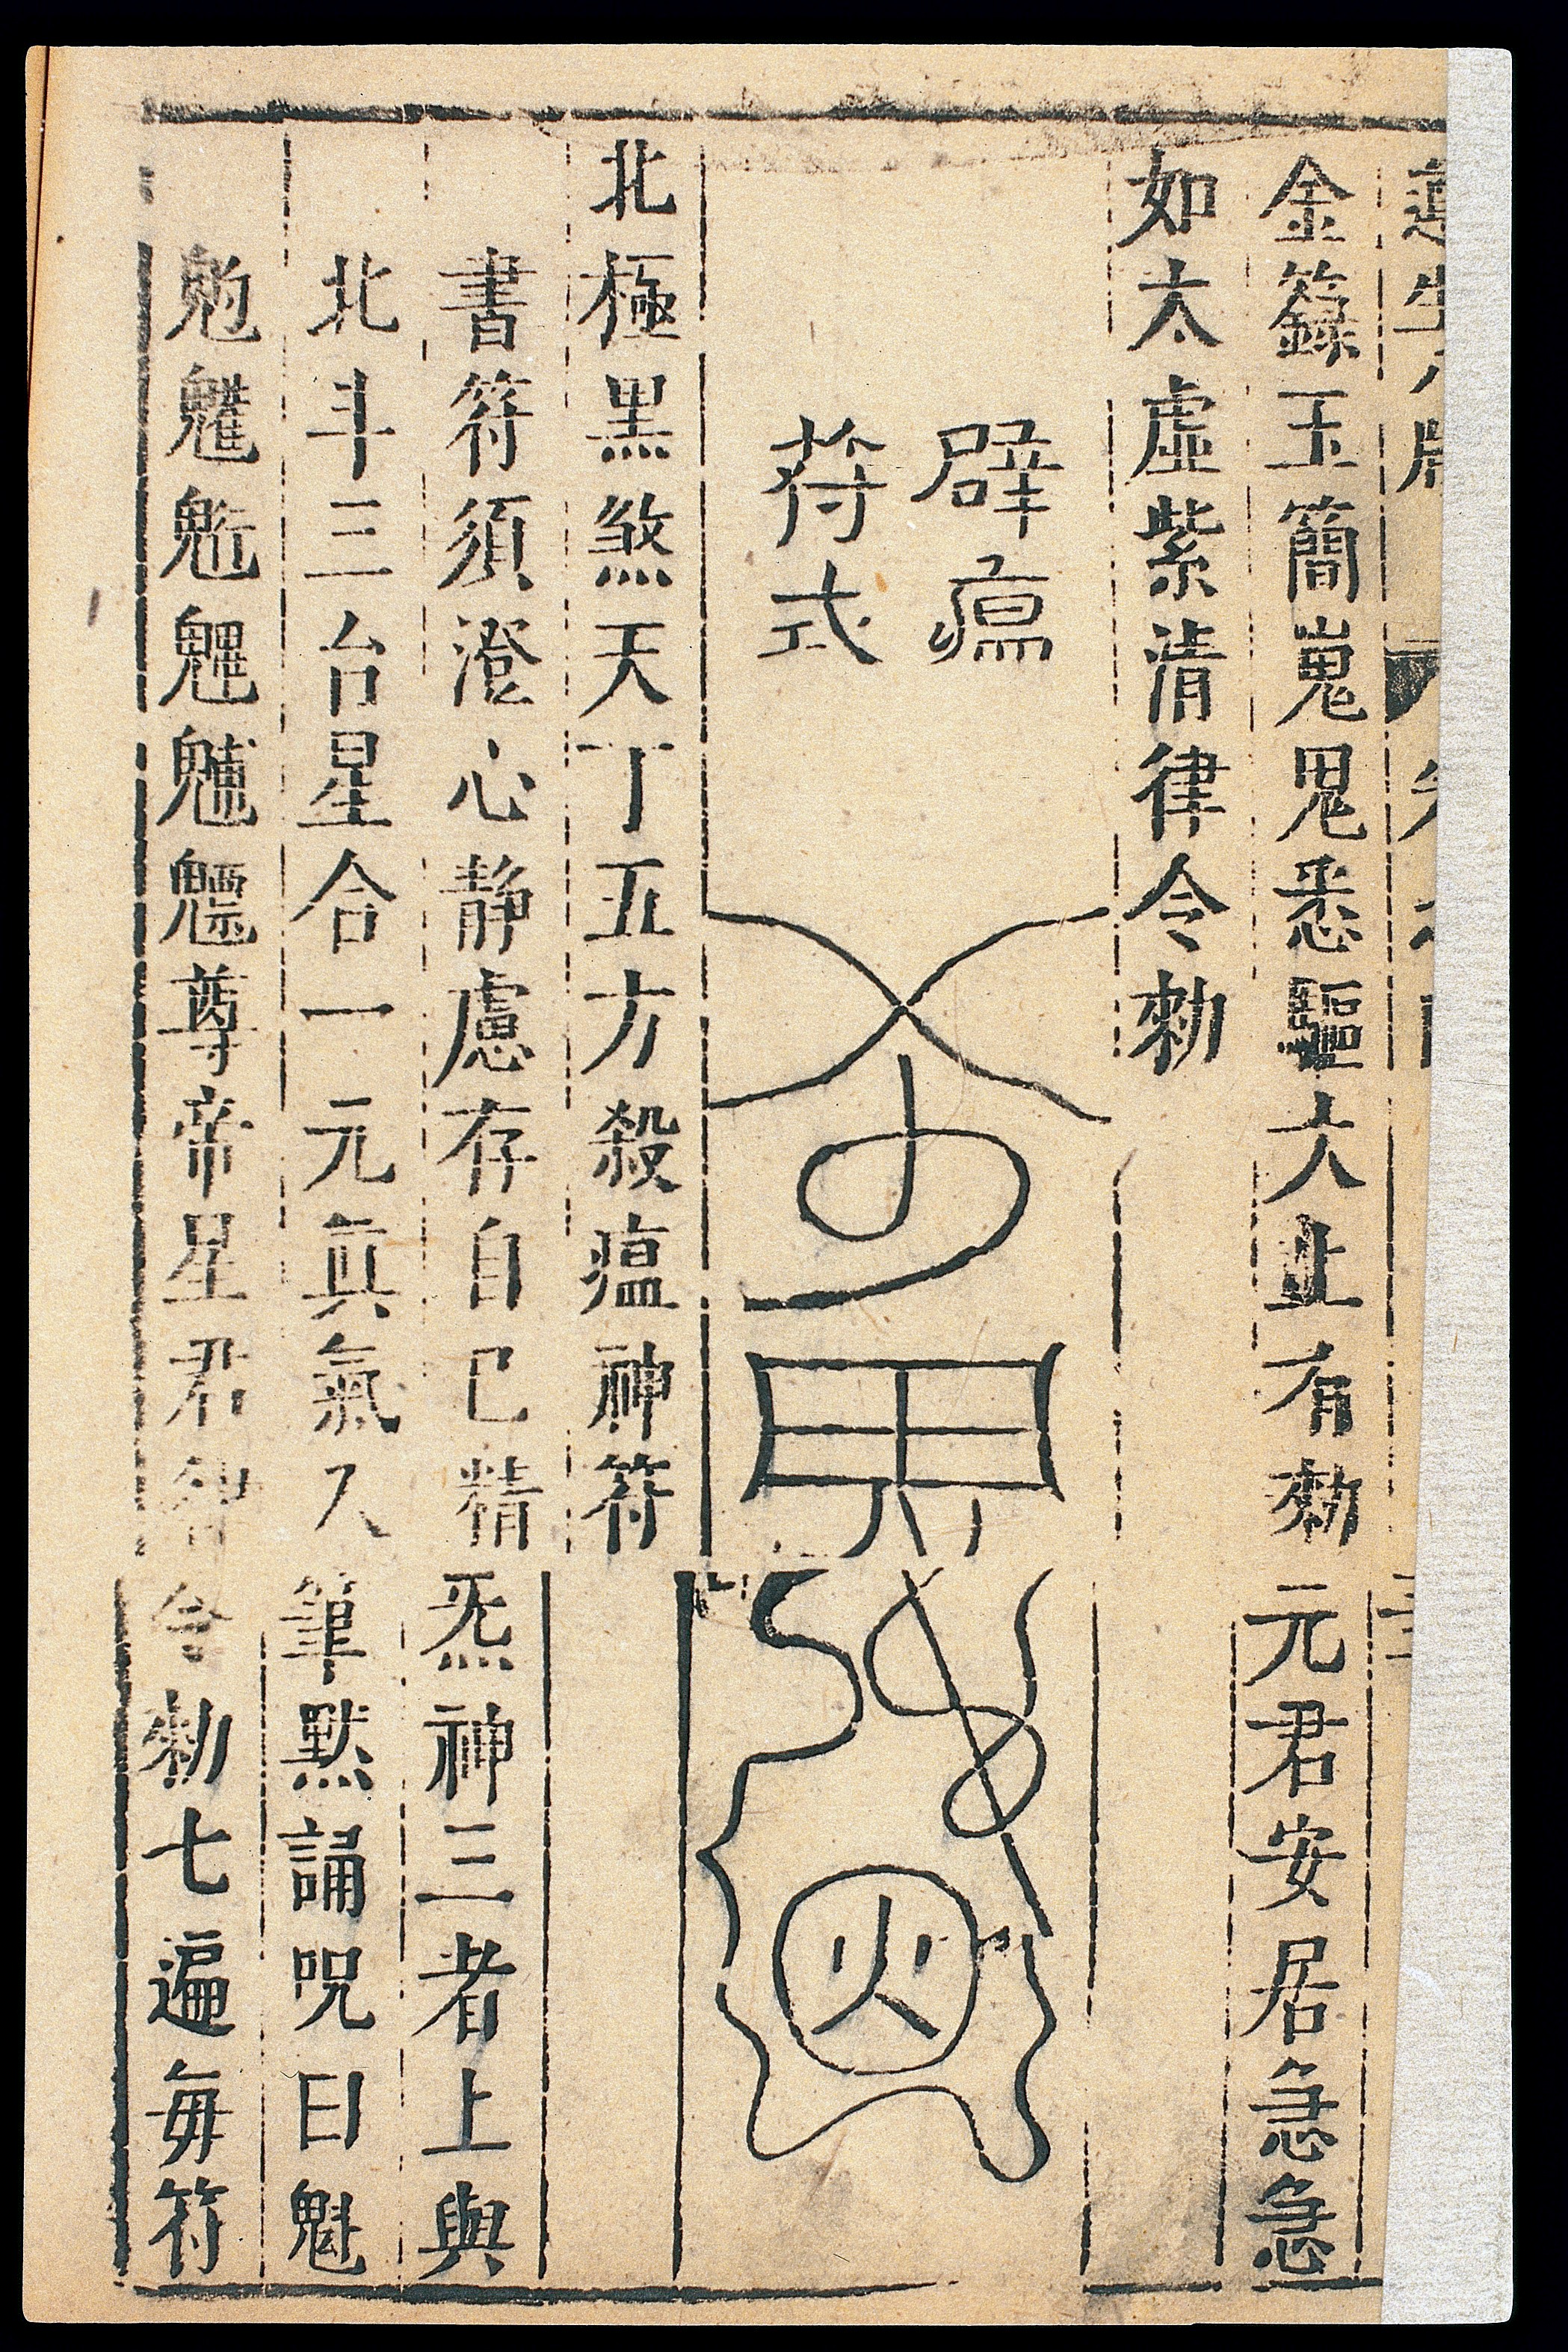 金籙玉簡嵬鬼悉驅大业有効元君安居急急
如太虛紫清律令勑
辟瘟
符式
火
北極黑煞天丁五方殺瘟神符
書符須澄心靜慮存自己精炁神三者上與
北斗三台星合一元真氣入筆默誦呪曰魁
𩲃𩵄䰢魓𩳐魒尊帝星君律令勑七遍每符